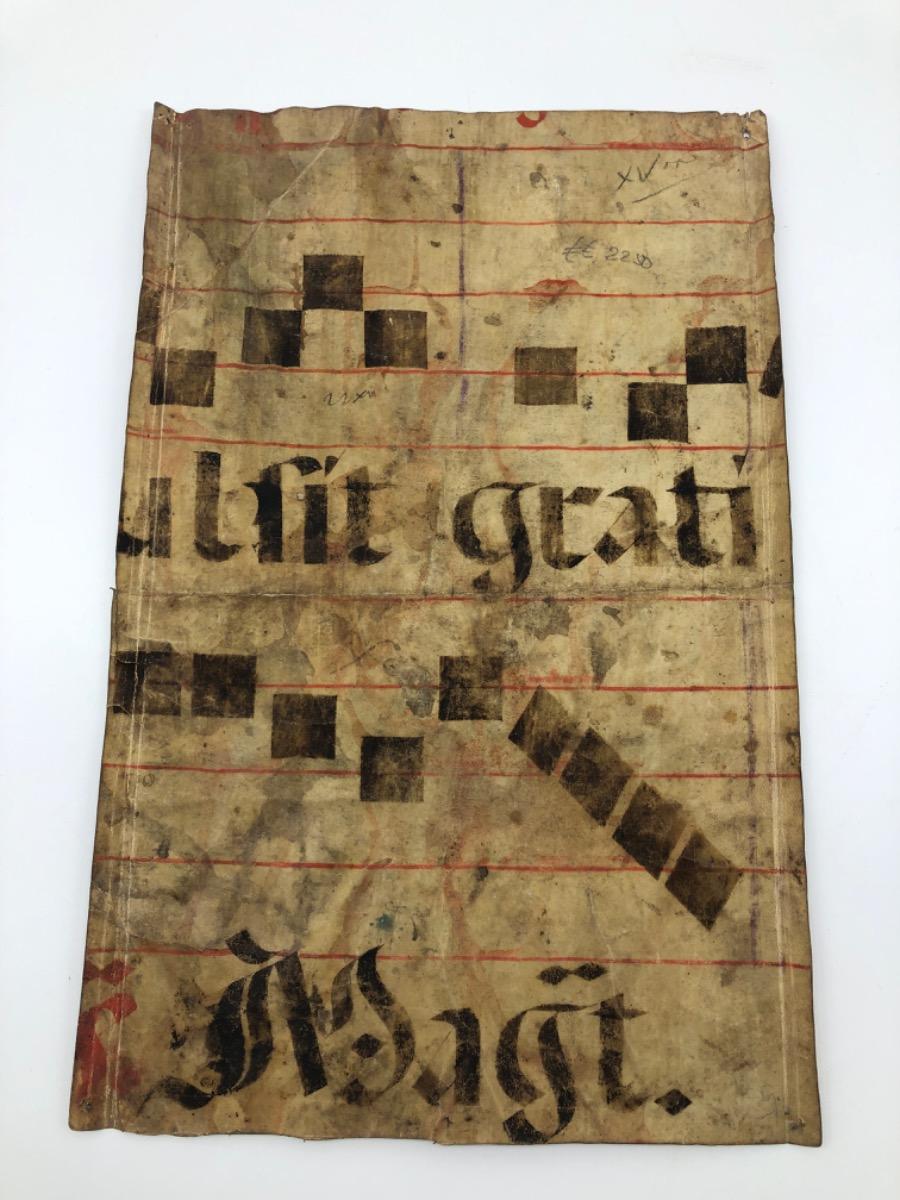 XV
22 50
ubsit grati
Mag̃t.